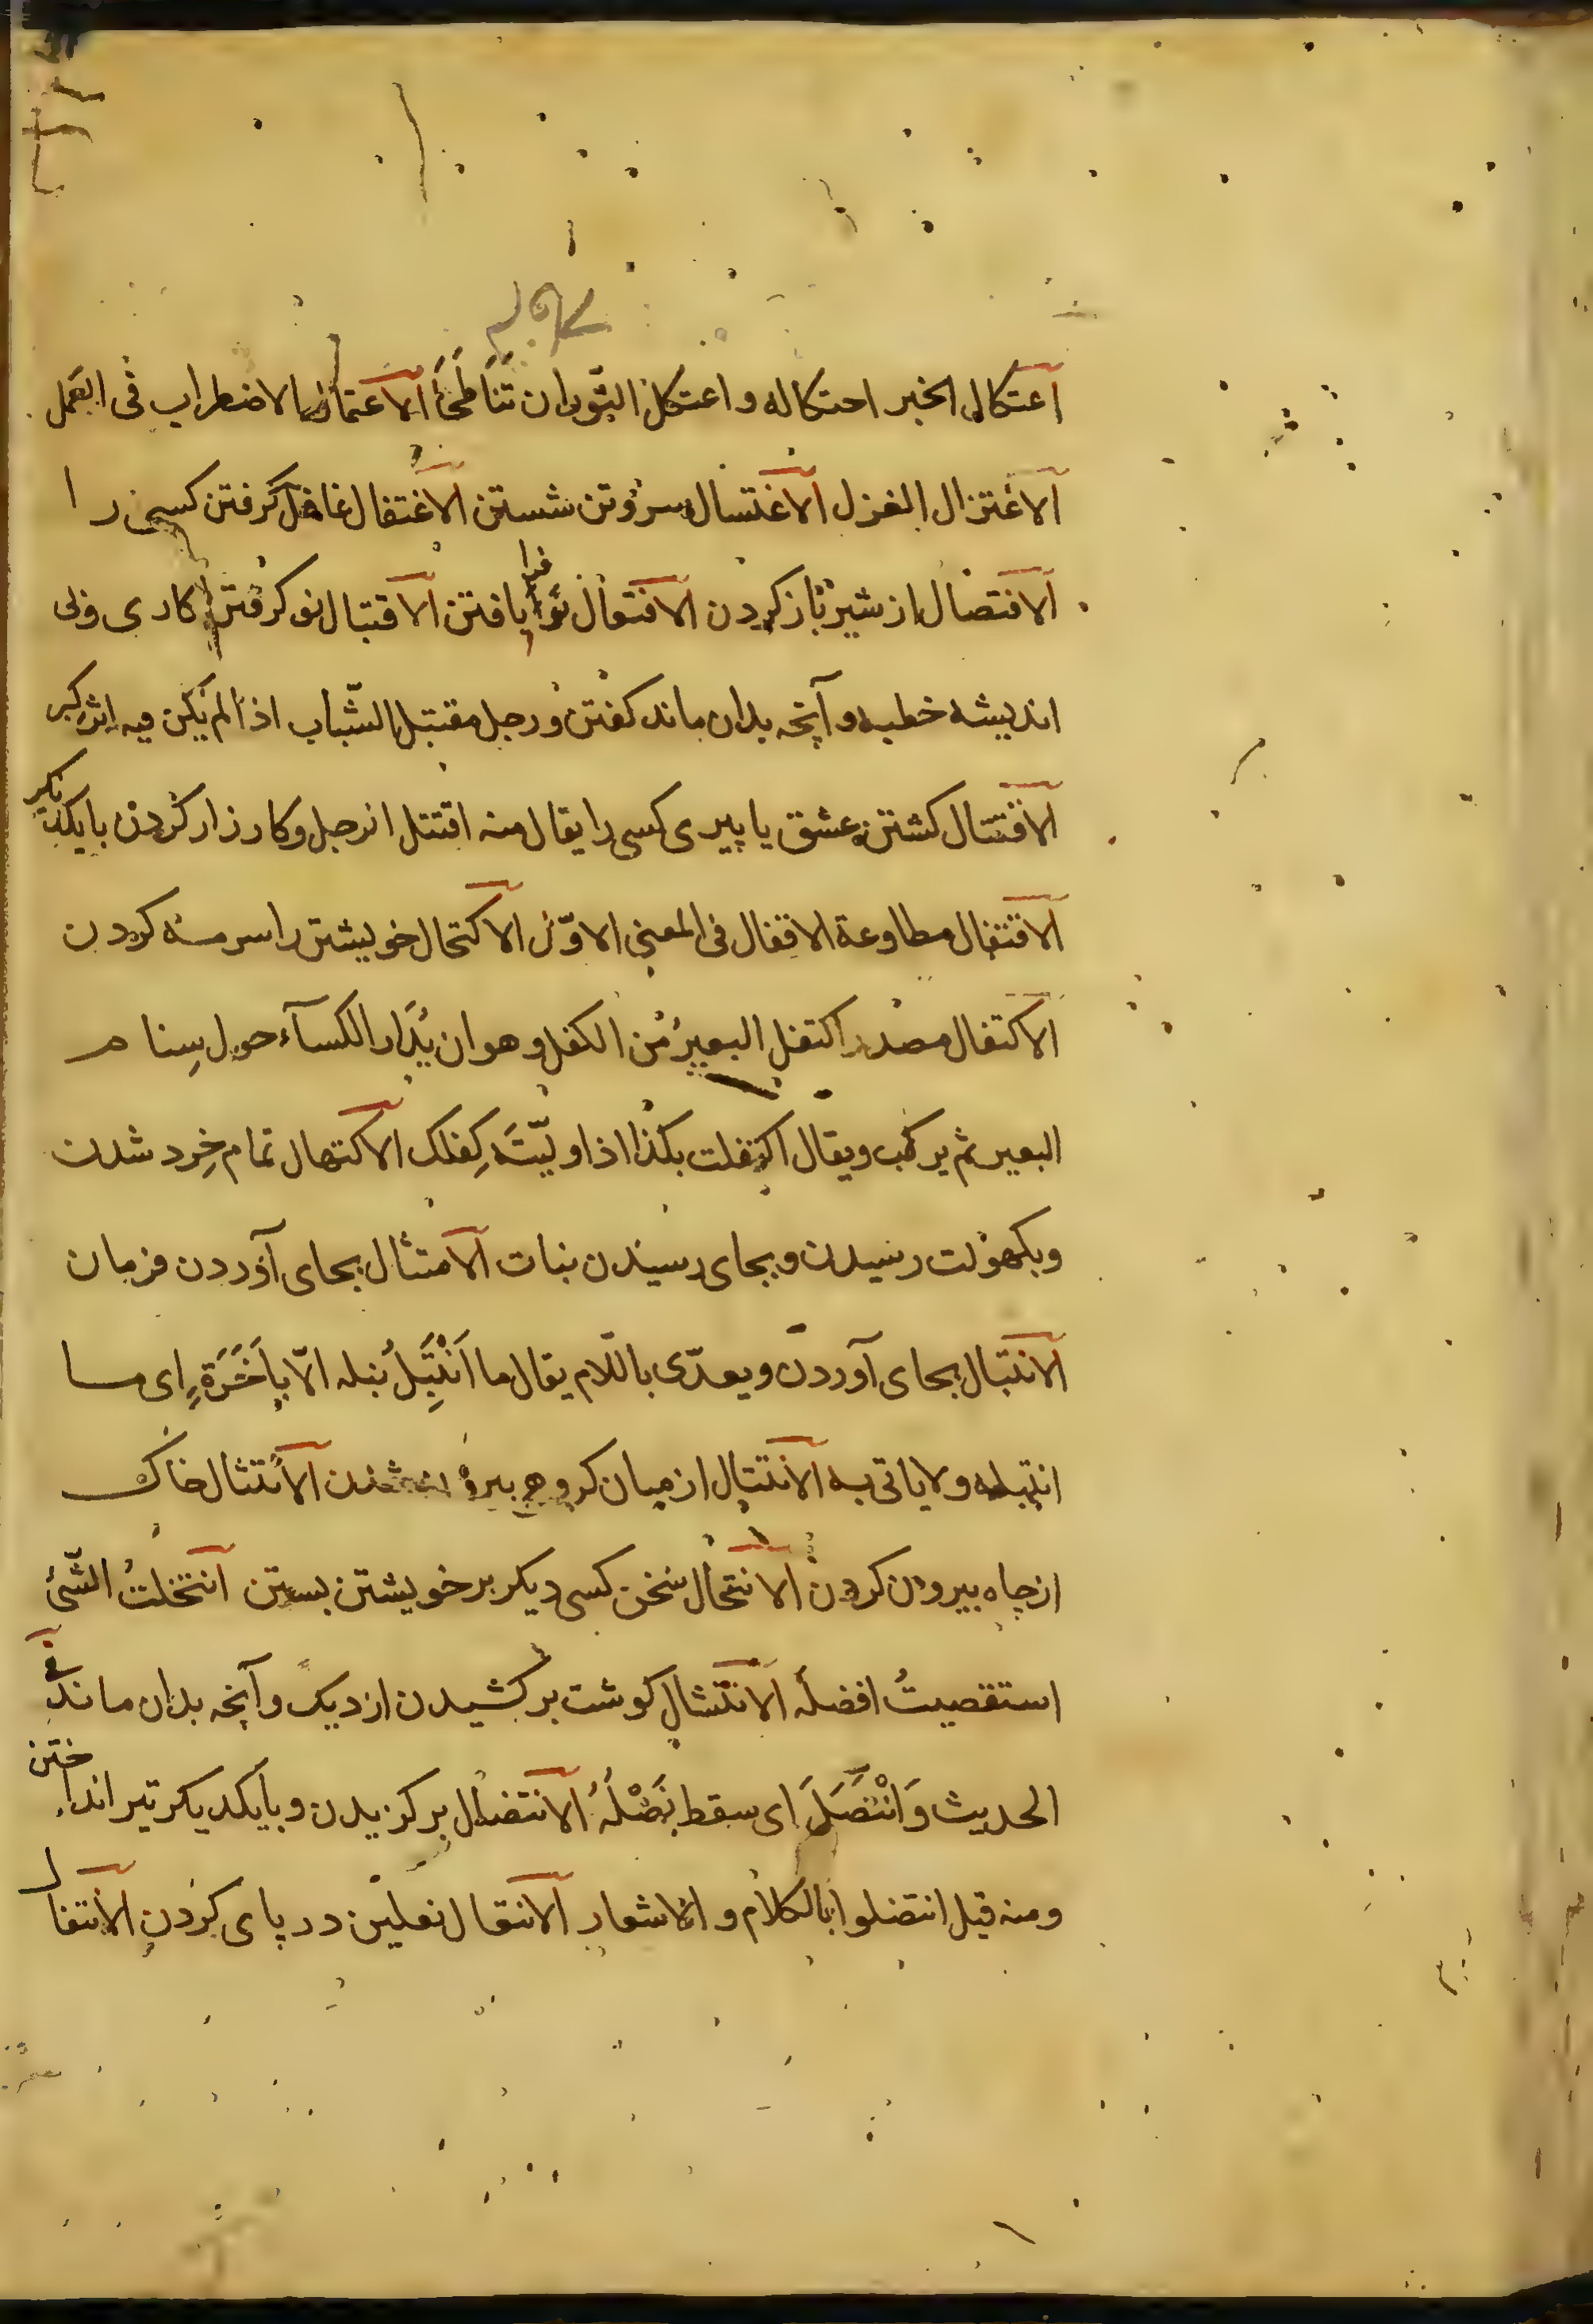 اعتكال الخبر احتكاله واعتكل الثوران تناطحا الاعتمال الاضطراب فى العمل
الاغتزال الغزل الاغتسال سر و تن شستن الاغتفال غافل كرفتن كسى را
الافتصال از شير باز كردن الافتعال فرا بافتن الاقتبال نو كرفتن كارى و بى
انديشه خطبه و آنچه بدان ماند كفتن و رجل مقتبل الشّباب اذا لم يكن فيه اثر كبر
الاقتتال كشتن عشق يا پيرى كسى را يقال منه اقتتل الرجل و كارزار كردن با يكديكر
الاقتفال مطاوعة الاقفال فى المعنى الاوّل الاكتحال خويشتن را سرمه كردن
الاكتفال مصدر اكتفل البعيرُ من الكفل وهو ان يُدَار الكسآء حول سِنام
البعير ثم يركب ويقال اكتفلت بكذا اذا وليّتَه كِفلك الاكتهال تمام خِرد شدن
وبكهولت رسيدن وبجاى رسيدن نبات الامتثال بجاى آوردن فرمان
الانتبال بجاى آوردن ويعدّى باللّام يقال ما اَنْتَبِلُ نبله الاّ بِاَخَرَةٍ اى ما
انتبله ولا ياتى به الانتتال از ميان كروهى بيرون شدن الانتثال خاك
از چاه بيرون كردن الانتحال سخن كسى ديكر بر خويشتن بستن انتخلتُ الشّئ
استقصيتُ افضله الانتشال كوشت بر كشيدن از ديك و آنچه بدان ماند فى
الحديث وَانْتَصَلَ اى سقط نَصْلُهُ الانتضال بركزيدن و با يكديكر تير انداختن
ومنه قيل انتضلوا بالكلام والاشعار الانتعال نعلين در پاى كردن الانتفال